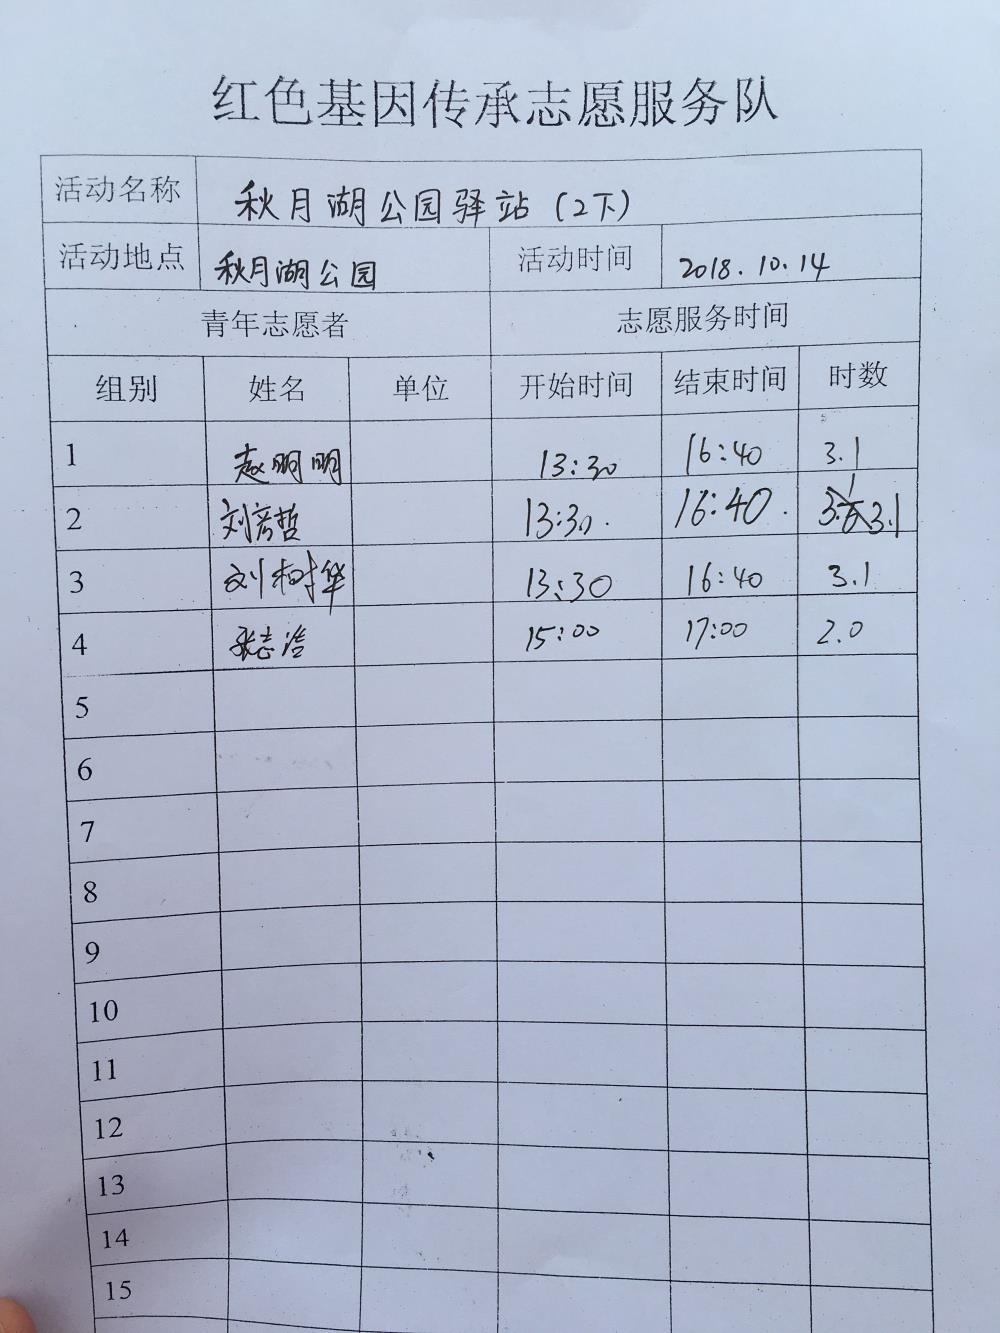 红色基因传承志愿服务队
活动名称 秋月湖公园驿站(2下)
活动地点 秋月湖公园 活动时间 2018.10.14
青年志愿者 志愿服务时间
组别 姓名 单位 开始时间 结束时间 时数
1 赵明明 13:30 16:40 3.1
2 刘彦哲 13:30. 16:40. 3.1
3 刘树华 13:30 16:40 3.1
4 张志浩 15:00 17:00 2.0
5
6
7
8
9
10
11
12
13
14
15